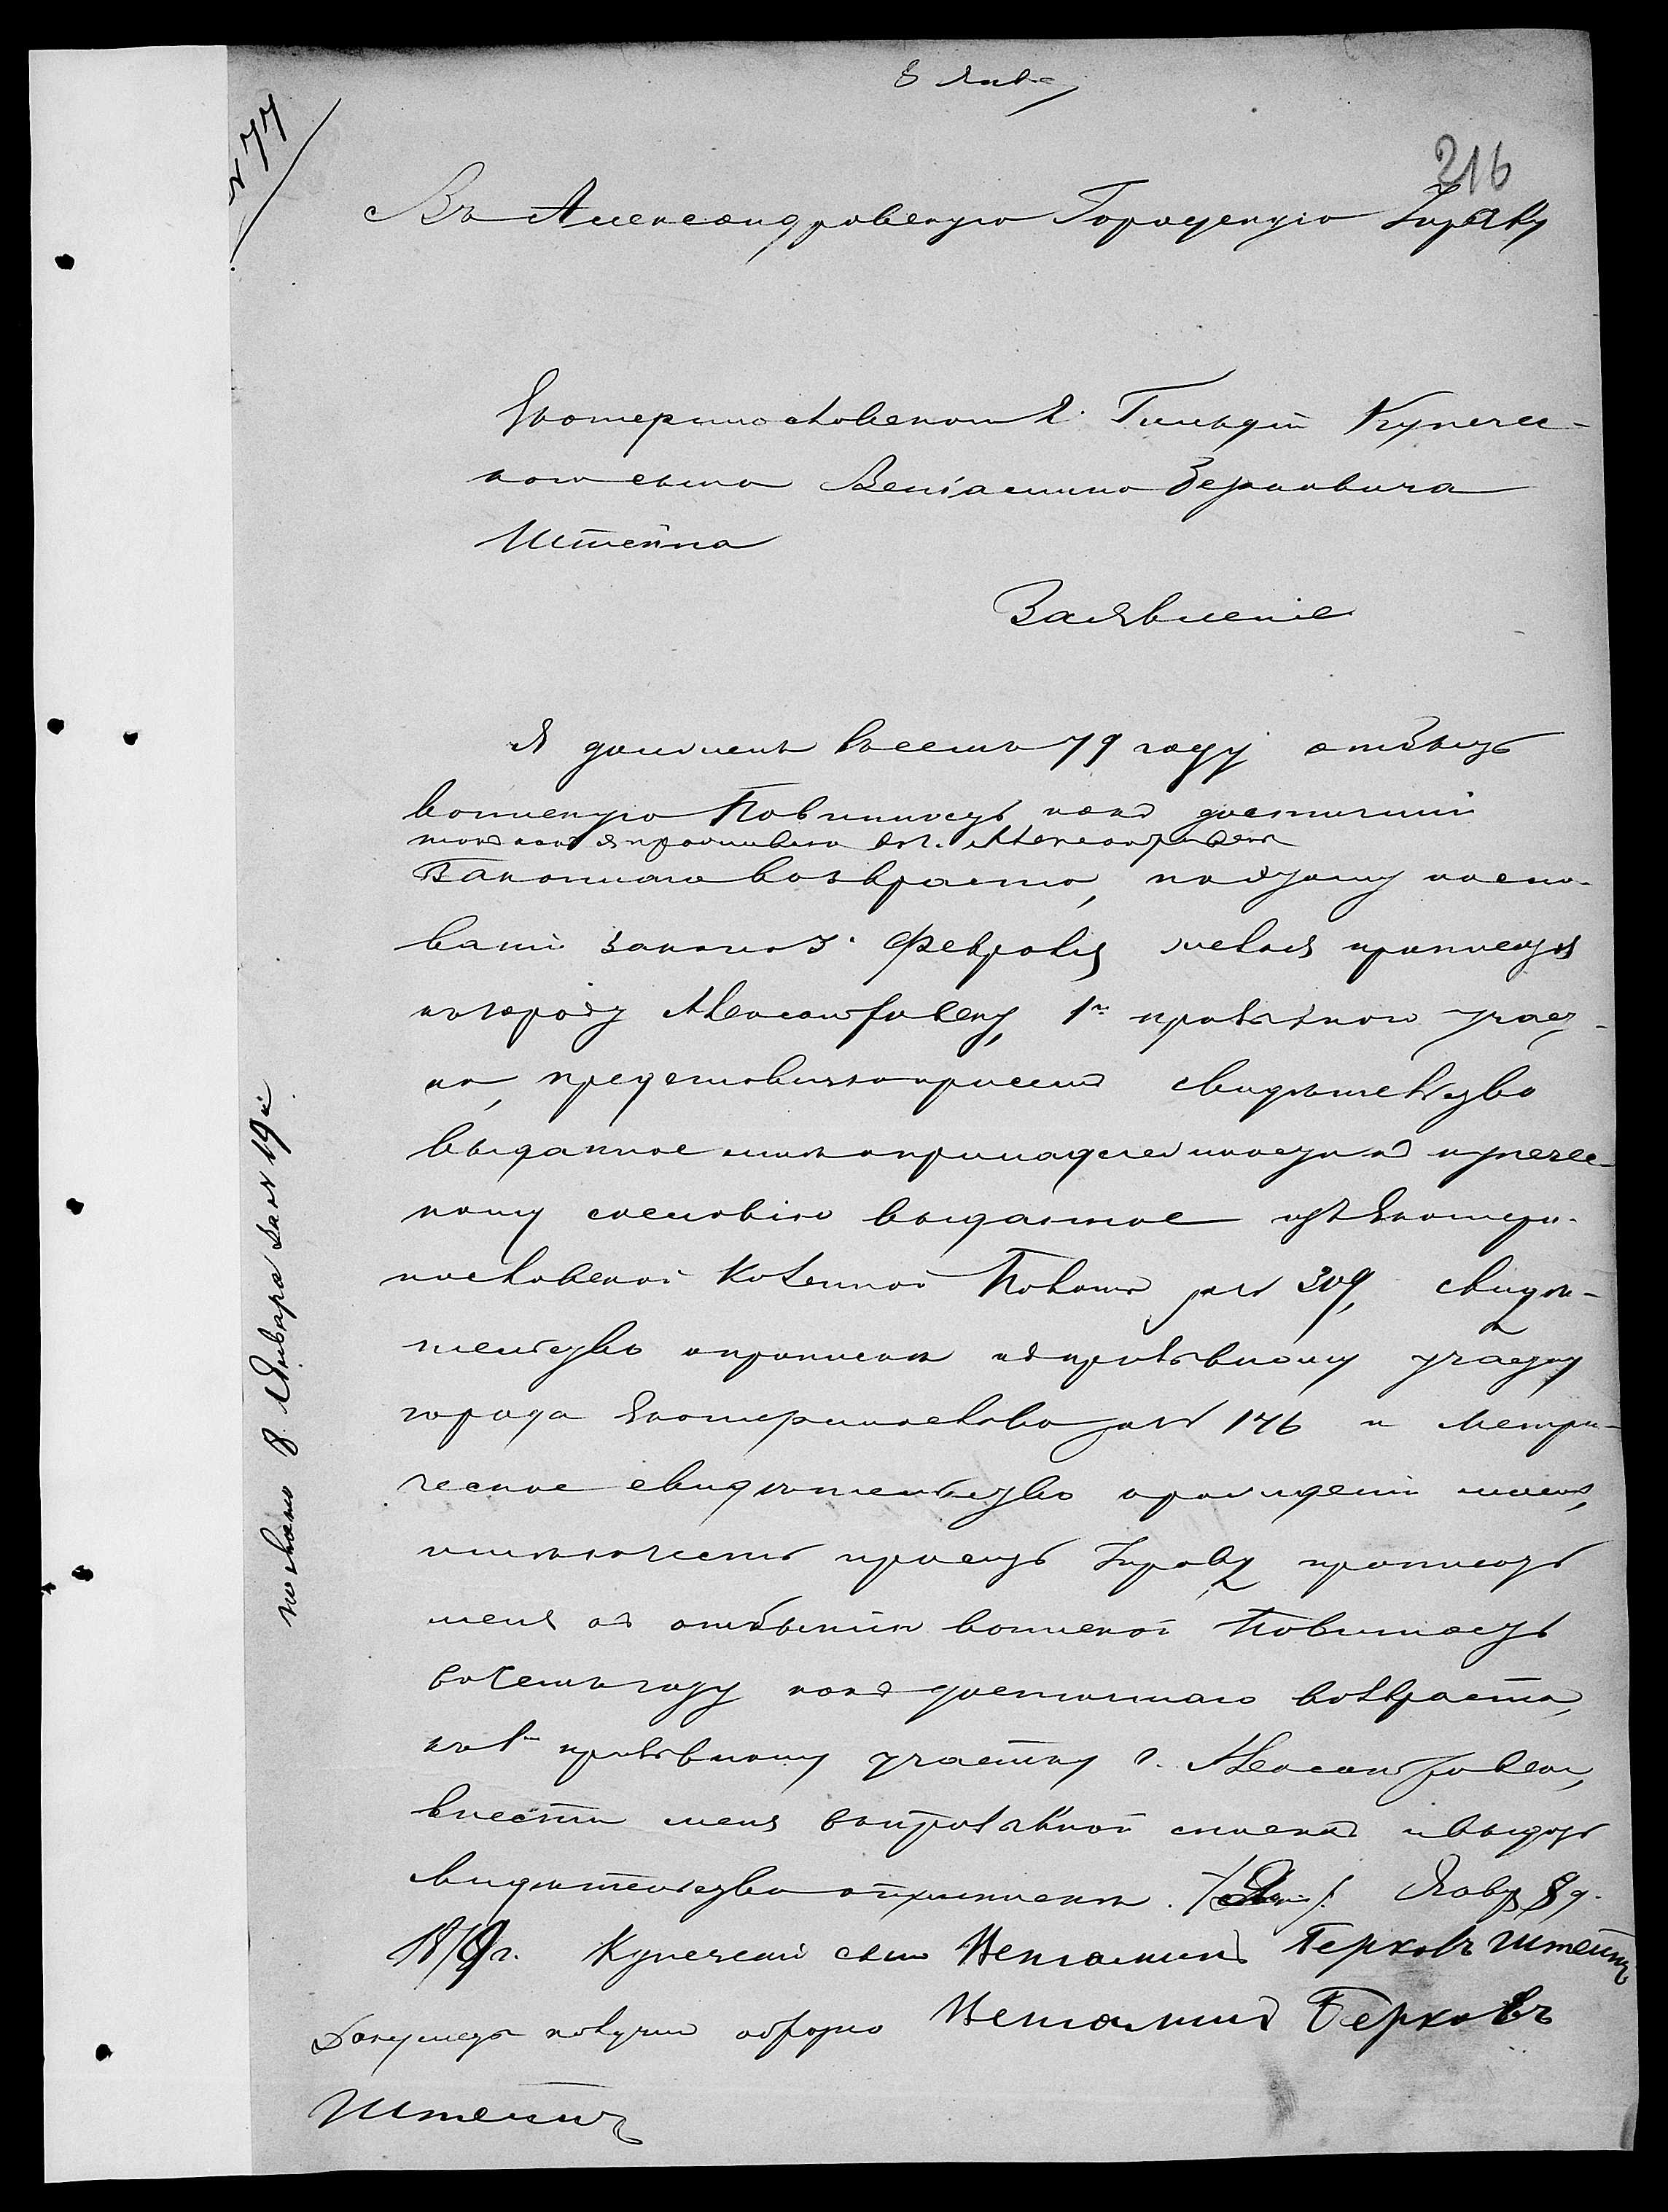 8 Янв.
№ 77
216
Въ Александровскую Городскую Управу
Екатеринославскаго 2. Гильдіи Купечес-
каго сына Веніамина Берковича
Штейна
Заявленіе
Я долженъ всемъ 79 году отбыть
воинскую Повинность какъ достигшій
такъ какъ я проживаю въ г. Александровскѣ
Законнаго возраста, поэтому на осно-
ваніи закона Февраля приписаться
къ городу Александровску, 1го призывнаго учас-
ка, представляя при семъ свидѣтельство
выданное мнѣ о принадлежности къ купечес-
кому сословію выданное изъ Екатери-
нославской Казенной Палаты за № 309, свидѣ-
тельство о припискѣ къ призывному участку
города Екатеринослава за № 176 и Метри-
ческое свидѣтельство о рожденіи моемъ,
имѣю честь просить Управу приписать
меня къ отбытію воинской Повинность
въ семъ году какъ достигшаго возраста,
къ 1му призывному участку г. Александровска,
внести меня въ призывной списокъ и выдать
свидѣтельство о припискѣ. Января 8 д.
1879 г. Купеческій сынъ Веніаминъ Берковъ Штейнъ
Документы получилъ обратно Веніаминъ Берковъ
Штейнъ
8 Января за № 19й